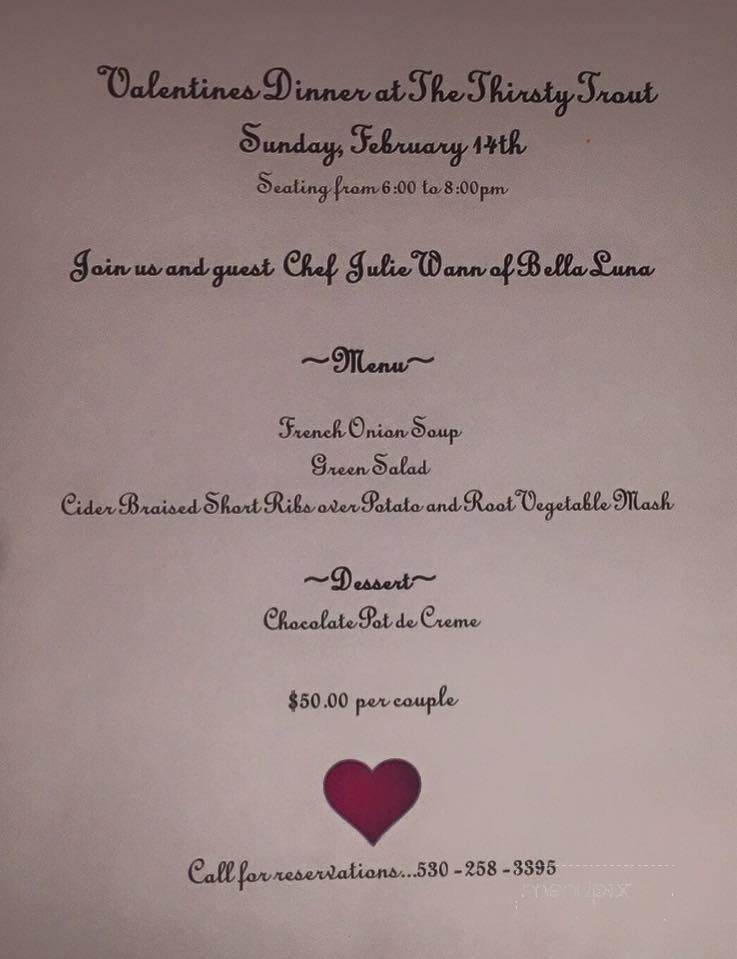 Valentines Dinner at The Thirsty Trout
Sunday, February 14th
Seating from 6:00 to 8:00pm
Join us and guest Chef Julie Wann of Bella Luna
~Menu~
French Onion Soup
Green Salad
Cider Braised Short Ribs over Potato and Root Vegetable Mash
~Dessert~
Chocolate Pot de Creme
$50.00 per couple
Call for reservations...530-258-3395
menupix